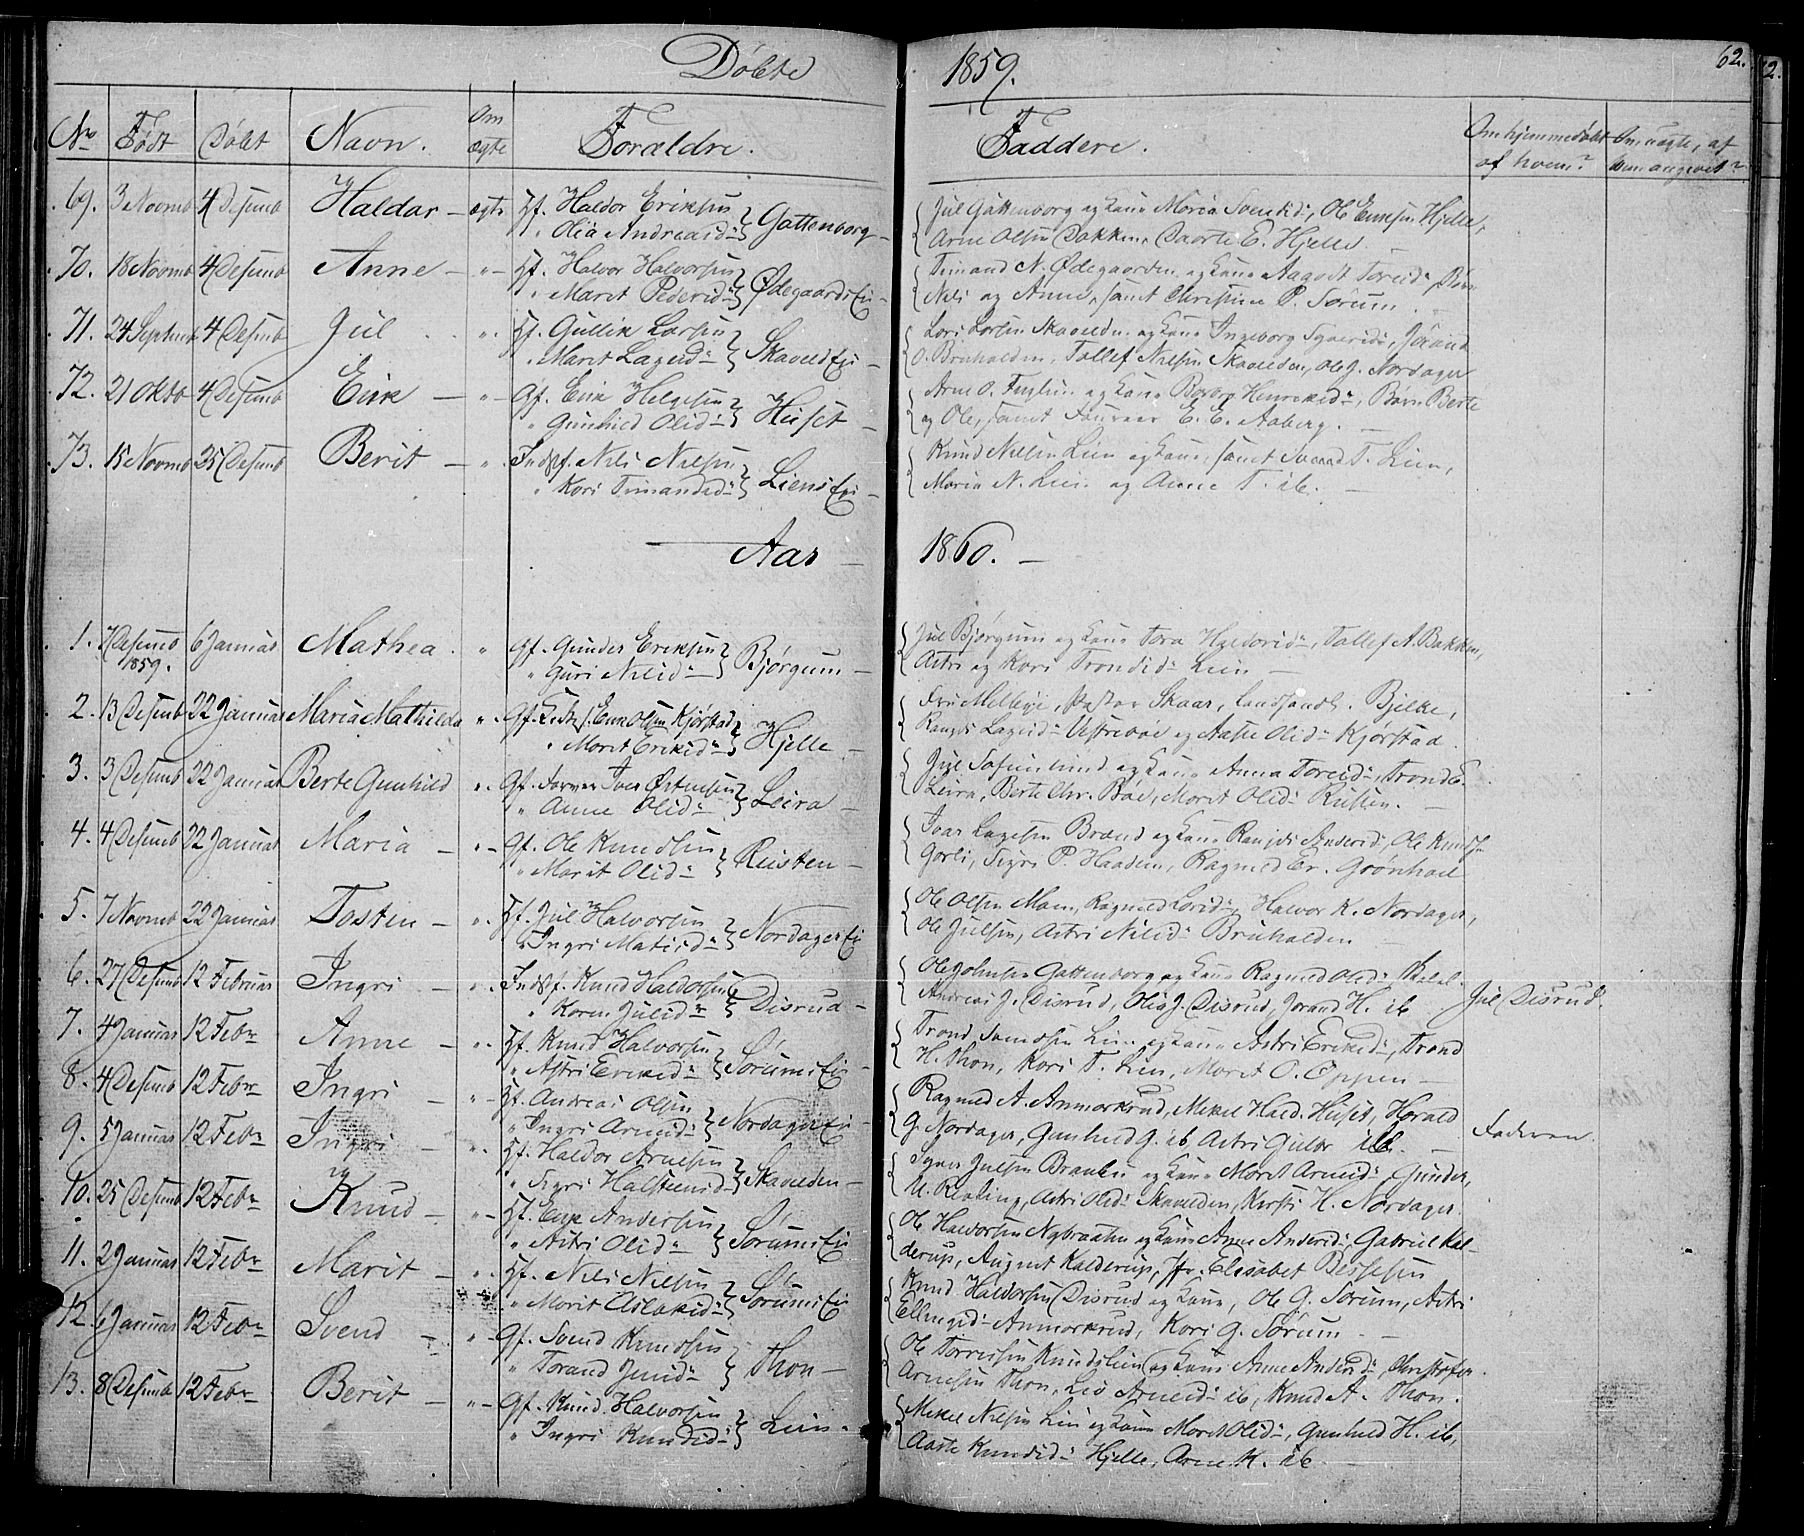 Døbte 1859. 62.
No Født Døbt Navn. Om ægte Forældre. Faddere. Om hjemmedøbt af hvem? Om uægte, af hvem angivet?
69. 3 Novmb 4 Desemb Haldor – ægte Hf. Haldor Eriksen
" Olia Andreasd: } Gattenborg –
{ Jul Gattenborg og Kone Maria Svendsd:, Ole Eriksen Hjelle,
Arne Olsen Bakken, Baarte E. Hjelle. –
70. 18 Novmb 4 Desemb Anne – " – Hf. Halvor Halvorsen
" Marit Pedersd: } Ødegaards Ei –
{ Timand N. Ødegaarden og Kone Aagodt Toresd:, Børn
Nils og Anne, samt Christine P. Sørum.
71. 24 Septemb 4 Desemb Jul " Hf. Gullik Larsen
" Marit Lagesd: } Skaveld Ei –
{ Lars Larsen Skavelden og Kone Ingeborg Syversd:, Jørand
O. Bruhalden, Tollef Nilsen Skavelden, Ole J. Nordager
72. 21 Oktb 4 Desemb Erik – " – Gf. Erik Helgesen
" Gunhild Olsd: } Huset –
{ Arne O. Fuglien og Kone Barbro Henriksd:, Børn Berte
og Ole, samt E. E. Aaberg. –
73. 15 Novmb 25 Desemb Berit – " Inds̈t. Nils Nilsen
" Kari Timandsd: } Liens Ei –
{ Knud Nilsen Lien og Kone, samt Svend T. Lien,
Maria N. Lien og Anne T. ib. –
Aar – 1860. –
1. 7 Desemb 1859. 6 Januar Mathea. " Gf. Gunder Eriksen
" Guri Nilsd: } Bjørgum –
{ Jul Bjørgum og Kone Tora Haldorsd:, Tollef A. Bakken,
Astri og Kari Trondsd: Lien –
2. 13 Desemb 22 Januar Maria Mathilda " Gf. Erik Olsen Kjørstad
" Marit Eriksd: } Hjelle –
{ Fru Melbye, Pastor Skaar, Landhandl. Bjelke,
Rangdi Lagesd: Vestrebøe og Aase Olsd: Kjørstad.
3. 3 Desemb 22 Januar Berte Gunhild " Gf. Iver Østensen
" Anne Olsd: } Leira –
{ Jul og Kone Anna Toresd:, Trond E.
Leira, Berte Chr. Bøe, Marit Olsd: Rusten. –
4. 4 Desemb 22 Januar Maria – " – Gf. Ole Knudsen
" Marit Olsd: } Rusten –
{ Ivar Lagesen Brænd og Kone Rangdi Andersd:, Ole Knuds.
Garli, Sigri P. Haaden, Ragnild Er. Grønhoel
5. 7 Novmb 22 Januar Tosten – " Hf. Jul Halvorsen
" Ingri Matisd: } Nordager Ei
{ Ole Olsen Moen, Ragnild Larsd:, Halvor K. Nordager,
Ole Julsen, Astri Nilsd: Bruhalden
6. 27 Desemb 12 Februar Ingri – " Indst. Knud Haldorsen
" Karen Julsd: } Disrud –
{ Ole Johnsen Gattenborg og Kone Ragnild Olsd:
Andreas J. Disrud, Olia J. Disrud, Jørand H. ib Jul Disrud.
7. 4 Januar 12 Febr Anne – " Hf. Knud Halvorsen
" Astri Eriksd: } Sørums Ei –
{ Trond Svendsen Lien og Kone Astri Eriksd:, Trond
H. Thon, Kari T. Lien, Marit O. Oppen –
8. 4 Desemb 12 Febr Ingri – " – Hf. Andreas Olsen
" Ingri Arnesd: } Nordager Ei –
{ Ragnild A. Anmorkrud, Mekel Hald. Huset, Harald
G. Nordager, Gunhild G. ib Astri Gulbr ib. – Faderen.
9. 5 Januar 12 Febr Ingri – " Hf. Haldor Arnesen
" Sigri Halstensd: } Skavelden –
{ Syver Julsen og Kone Marit Arnesd:, Gunder
N. Astri Olsd: Skavelden, Kersti H. Nordager.
10. 25 Desemb 12 Febr Knud – " – Hf. Erik Andersen
" Astri Olsd: } Sørums Ei
{ Ole Halvorsen Nybraaten og Kone Anne Andersd:, Gabriel Kal-
derup, August Kalderup, Jfr. Elisabet Bessesen
11. 2 Januar 12 Febr Marit – " Hf. Nils Nilsen
" Marit Aslaksd: } Sørums Ei
{ Knud Haldorsen Disrud og Kone, Ole G. Sørum, Astri
Ellingsd: Anmorkrud, Kari G. Sørum –
12. 6 Januar 12 Febr Svend – " Gf. Svend Knudsen
" Torand } Thon –
{ Ole Torresen Knudslien og Kone Anne Andersd:, Christofer
Arnesen Thon, Liv Arnesd: ib, Knud A. Thon.
13. 8 Desemb 12 Febr Berit – " – Gf. Knud Halvorsen
" Ingri Knudsd: } Lien –
{ Mekel Nilsen Lien og Kone Marit Olsd:, Gunhild H. ib,
Aaste Knudsd: Hjelle, Arne K. ib –